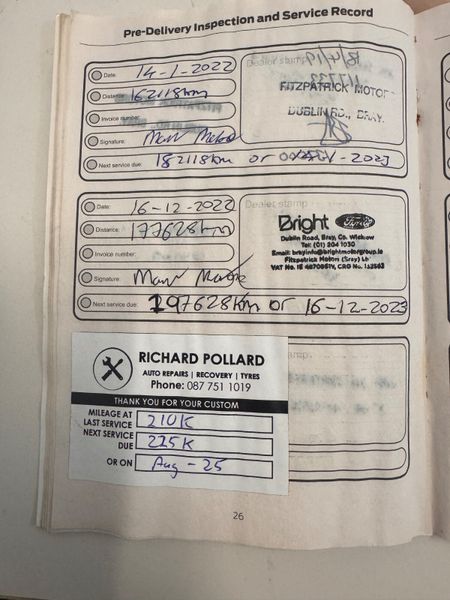 Pre-Delivery Inspection and Service Record
Date: 14-1-2022
Distance: 162118km
Invoice number:
Signature:
Next service due: 182118km or
Dealer stamp
FITZPATRICK MOTOR
DUBLIN RD., BRAY.
Date: 16-12-2022
Distance: 177628km
Invoice number:
Signature:
Next service due: 197628km or 16-12-2023
Dealer stamp
Bright Ford
Dublin Road, Bray, Co. Wicklow
Tel: (01) 204 1030
Email: brayinfo@brightmotorgroup.ie
Fitzpatrick Motors (Bray) Ltd
RICHARD POLLARD
AUTO REPAIRS | RECOVERY | TYRES
Phone: 087 751 1019
THANK YOU FOR YOUR CUSTOM
MILEAGE AT LAST SERVICE 210K
NEXT SERVICE DUE 225K
OR ON Aug - 25
26